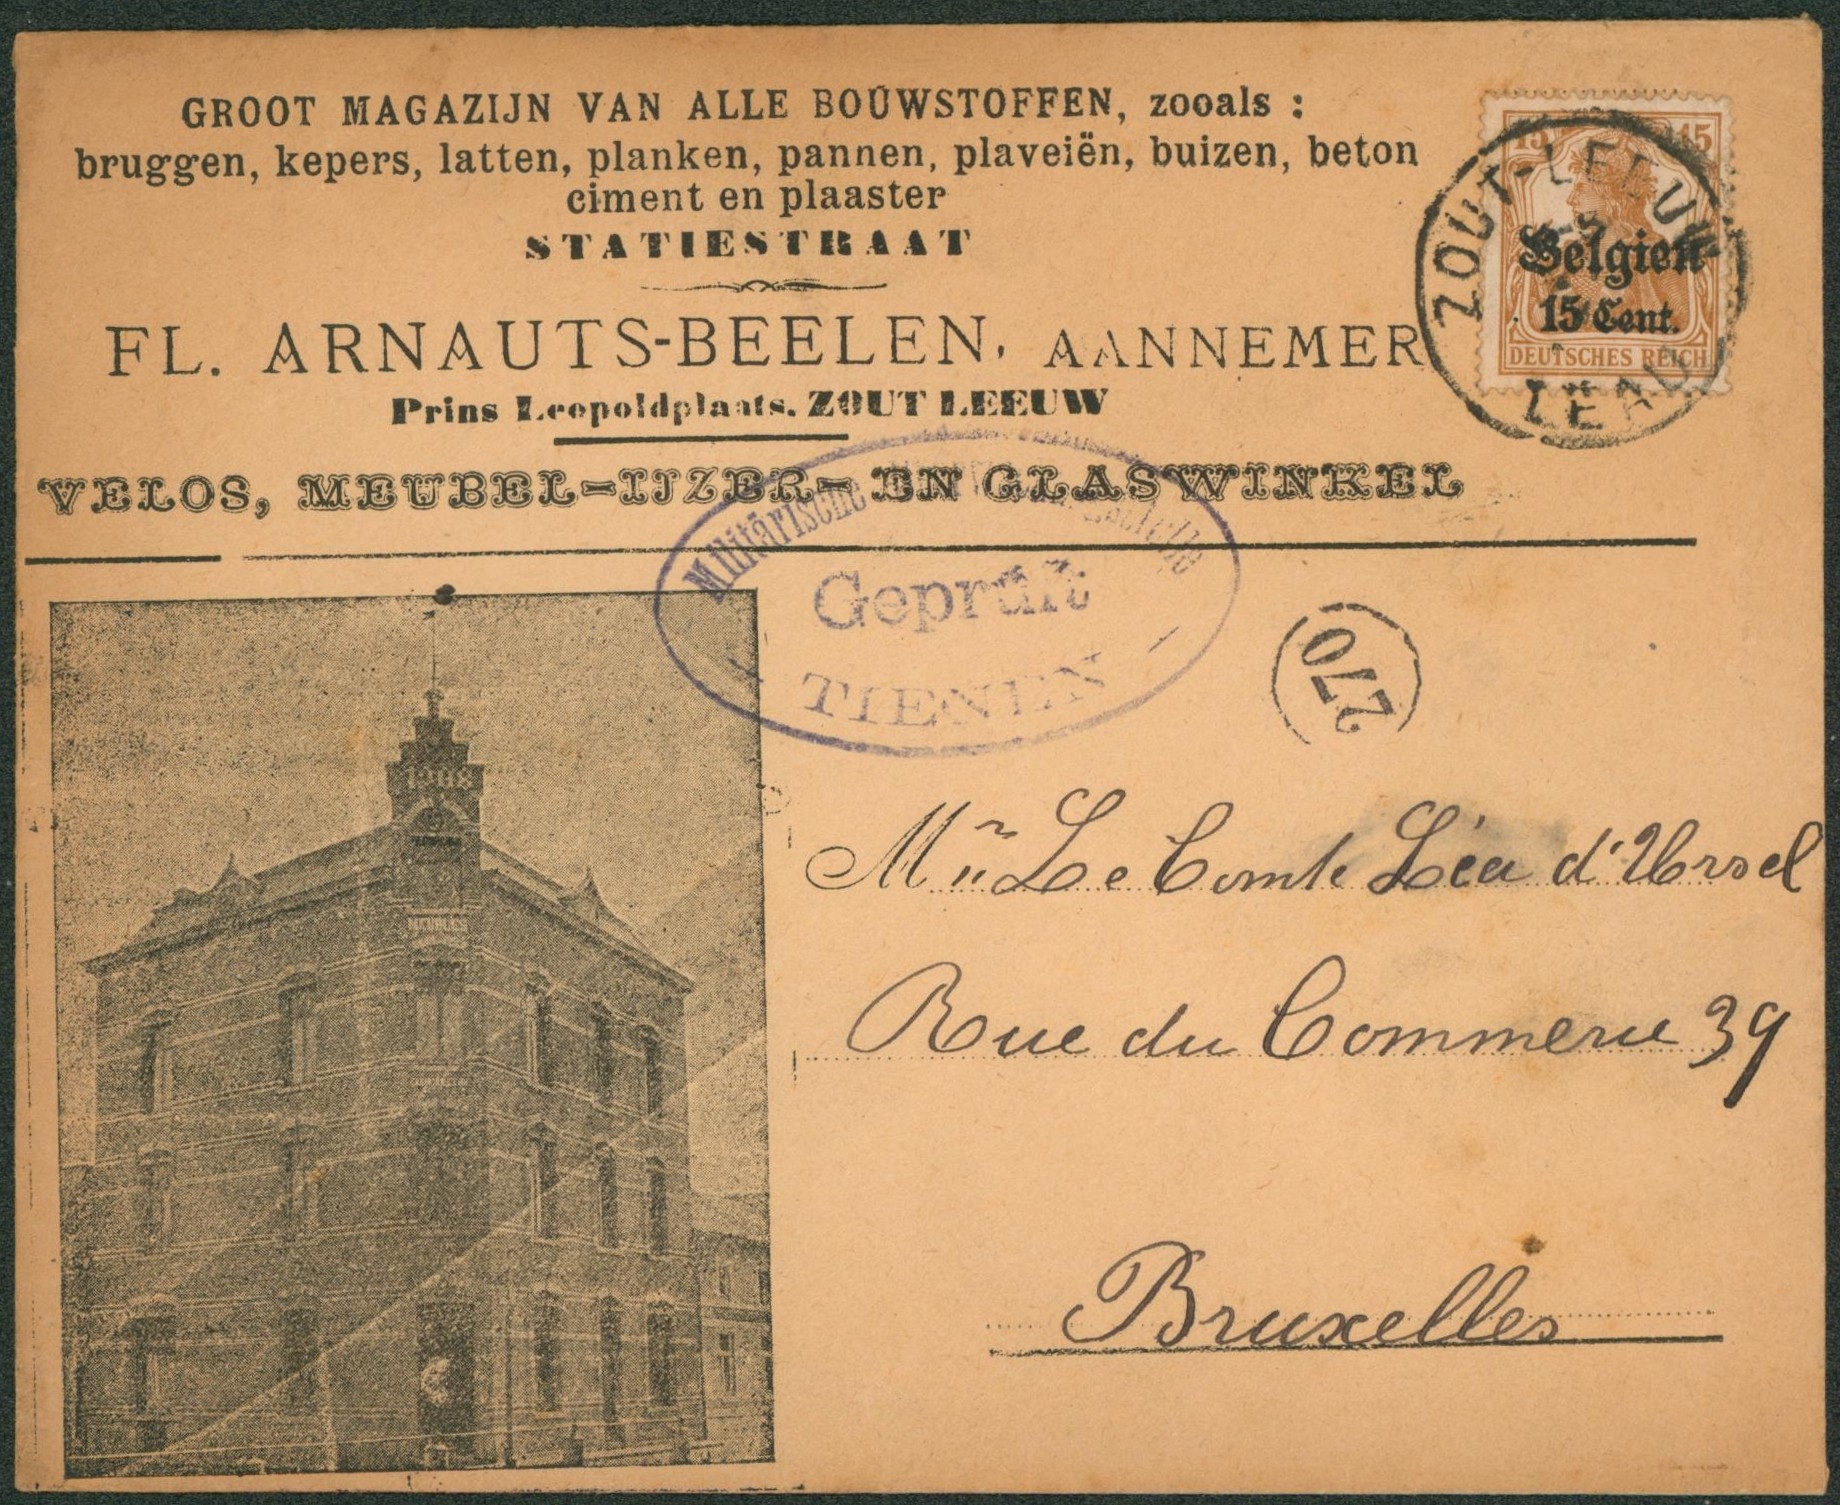 GROOT MAGAZIJN VAN ALLE BOUWSTOFFEN, zooals :
bruggen, kepers, latten, planken, pannen, plaveiën, buizen, beton
ciment en plaaster
STATIESTRAAT
FL. ARNAUTS-BEELEN, AANNEMER
Prins Leopoldplaats. ZOUT LEEUW
VELOS, MEUBEL-IJZER- EN GLASWINKEL
15 15
Belgien
15 Cent.
DEUTSCHES REICH
ZOUT-LEEUW
LEAU
Militärische
Geprüft
TIENEN
270
1908
MEUBLES
Mr Le Comte Léa d'Ursel
Rue du Commerce 39
Bruxelles